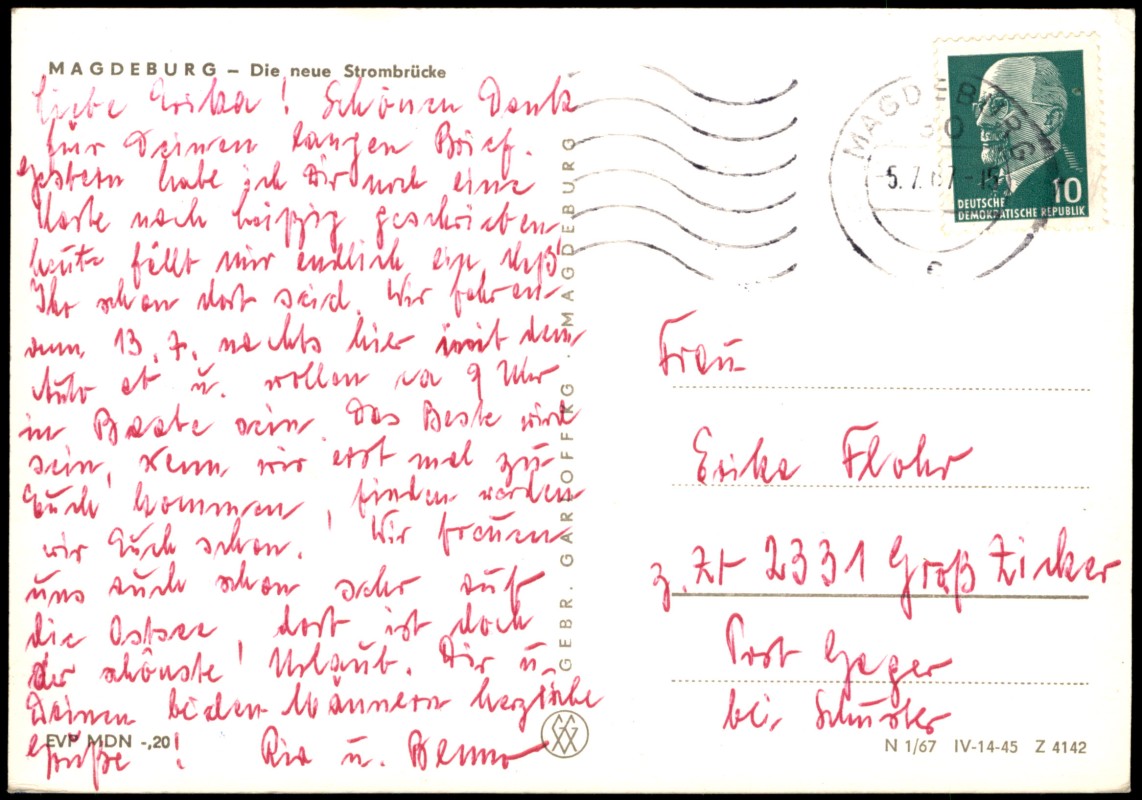 MAGDEBURG – Die neue Strombrücke
Liebe Erika! Schönen Dank
für Deinen langen Brief.
Gestern habe ich Dir noch eine
Karte nach Leipzig geschrieben
heute fällt mir endlich ein, daß
Ihr schon dort seid. Wir fahren
am 13. 7. nachts hier mit dem
Auto ab u. wollen ca 9 Uhr
in Baabe sein. Das Beste wird
sein, wenn wir erst mal zu
Euch kommen, finden werden
wir Euch schon. Wir freuen
uns auch schon sehr auf
die Ostsee, dort ist doch
der schönste Urlaub. Dir u.
Deinen beiden Männern herzliche
Grüße! Ria u. Benno
EVP MDN -,20
GEBR. GARLOFF KG · MAGDEBURG · MAGDEBURG
MAGDEBURG
5.7.67-15
DEUTSCHE
DEMOKRATISCHE REPUBLIK
10
Frau
Erika Flohr
z. Zt 2331 Groß Zicker
Post Gager
bei Schuster
N 1/67 IV-14-45 Z 4142